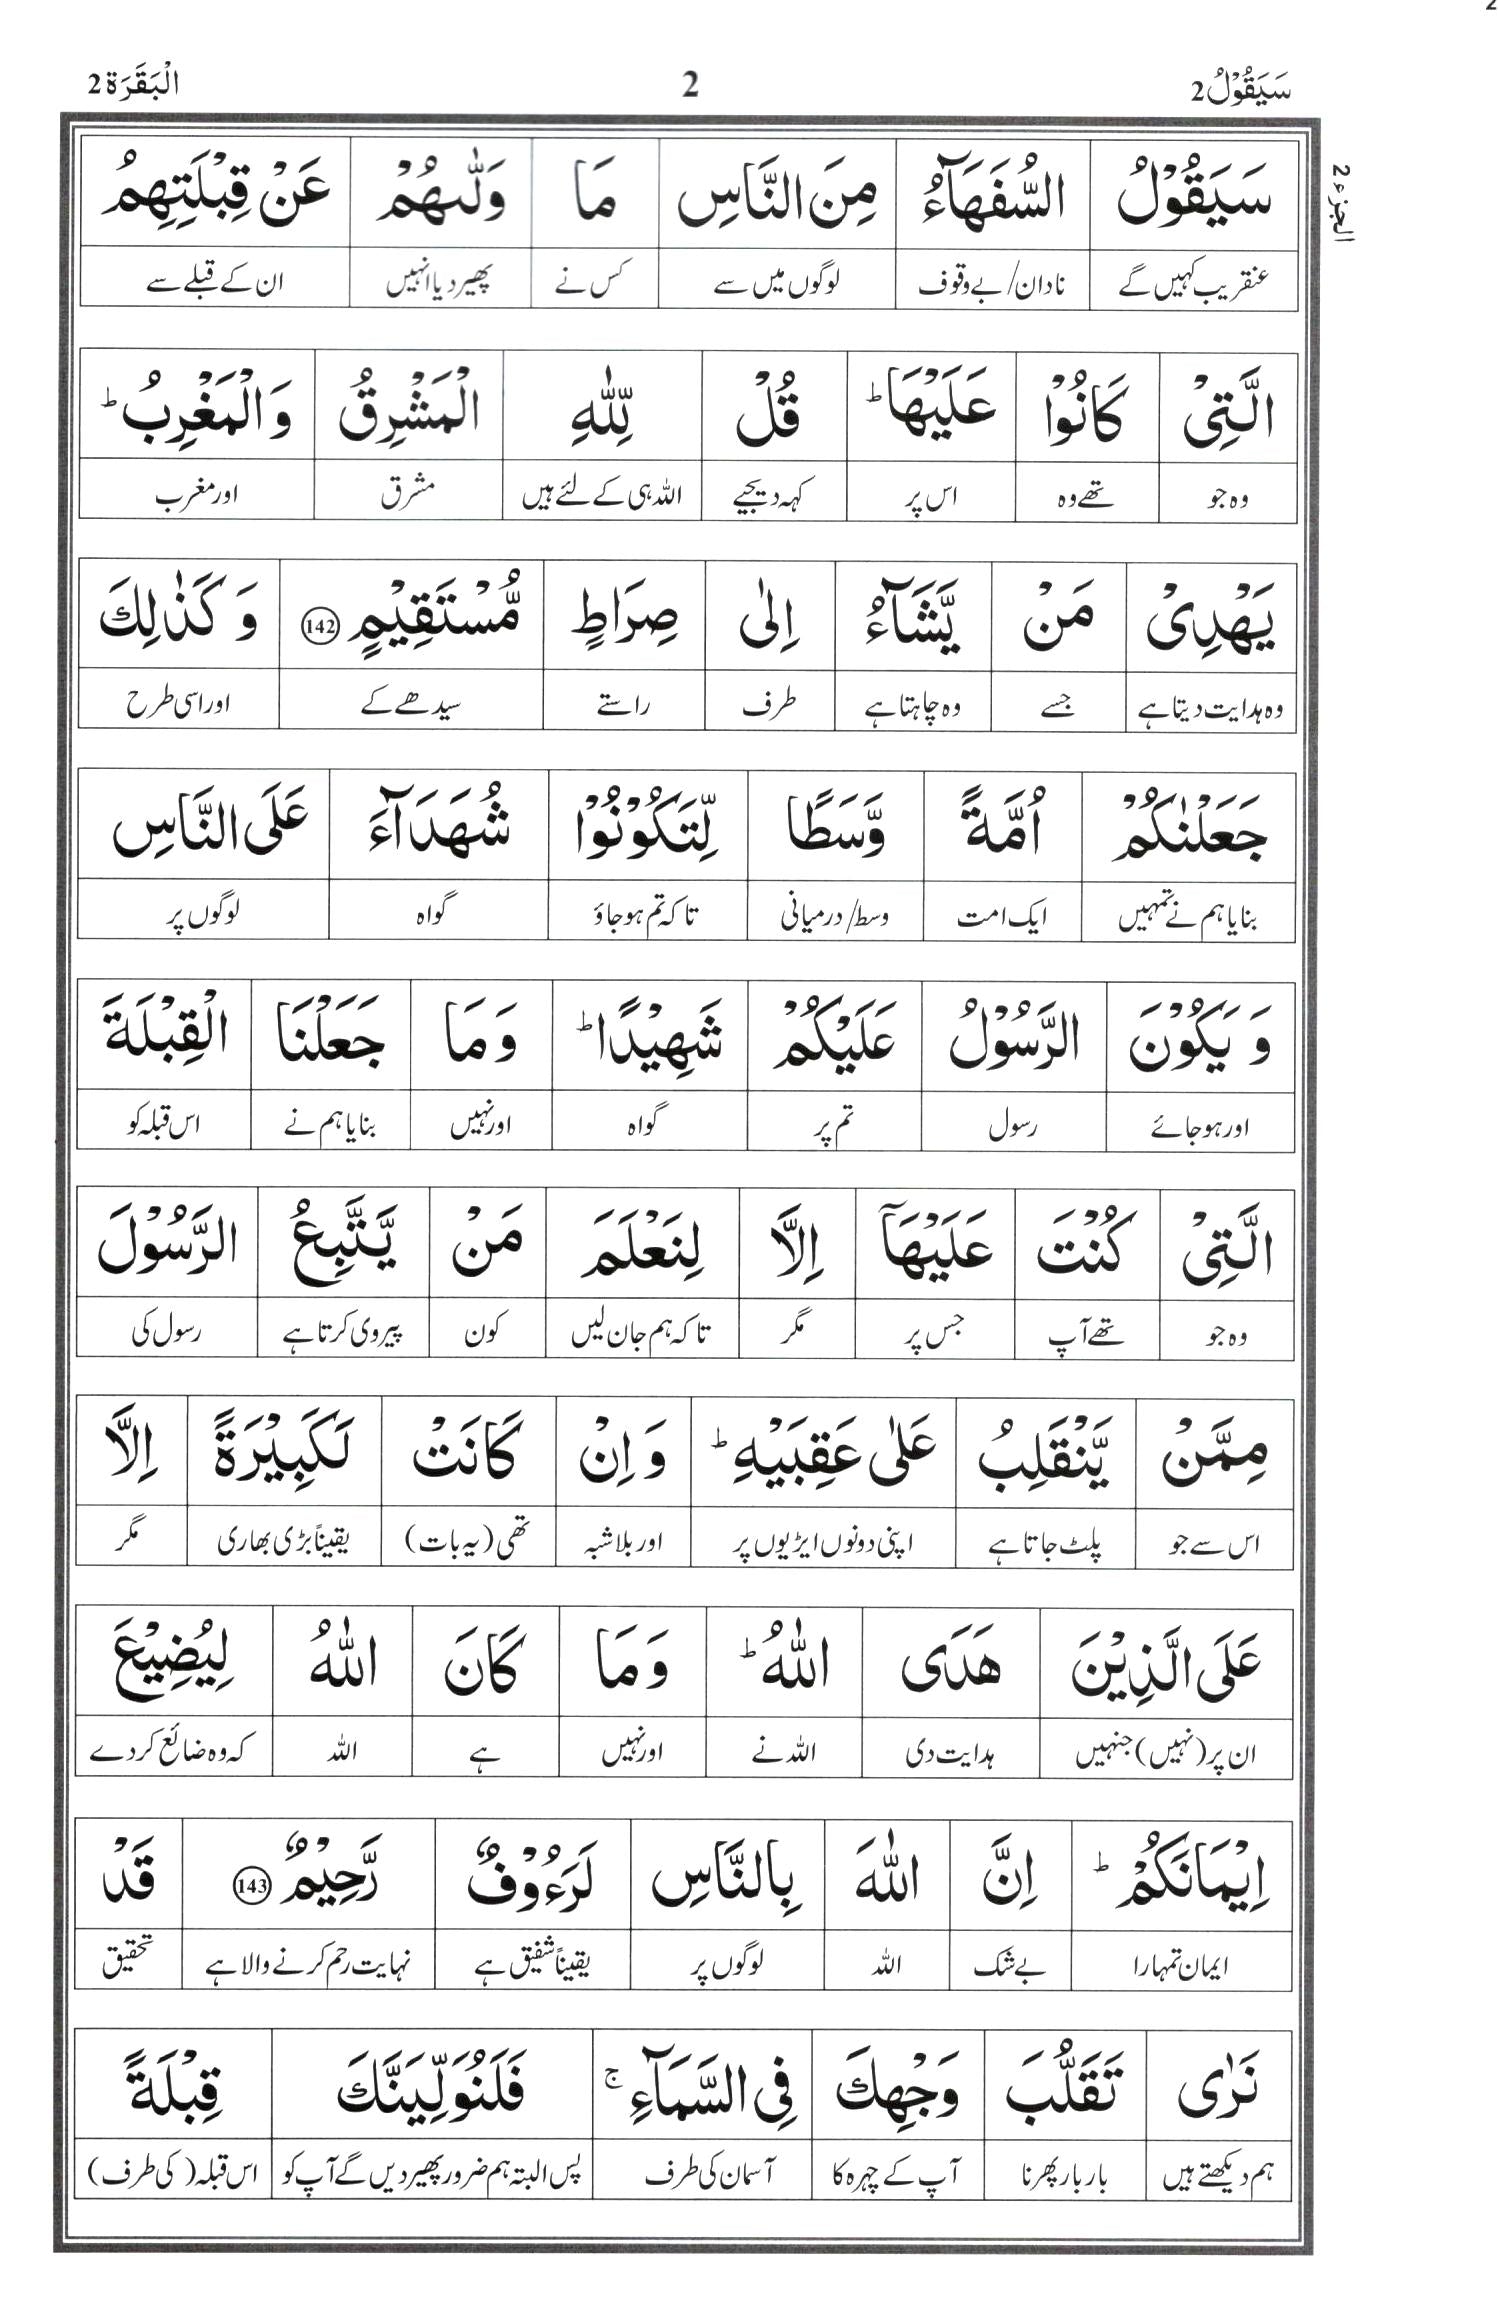 2
سَيَقُوْلُ2 2 الْبَقَرَة2
الجزء 2
سَيَقُوْلُ السُّفَهَآءُ مِنَ النَّاسِ مَا وَلّٰىهُمْ عَنْ قِبْلَتِهِمُ
عنقریب کہیں گے نادان/بے وقوف لوگوں میں سے کس نے پھیر دیا انہیں ان کے قبلے سے
الَّتِيْ كَانُوْا عَلَيْهَا ؕ قُلْ لِّلّٰهِ الْمَشْرِقُ وَالْمَغْرِبُ ؕ
وہ جو تھے وہ اس پر کہہ دیجیے اللہ ہی کے لئے ہیں مشرق اور مغرب
يَهْدِيْ مَنْ يَّشَآءُ اِلٰى صِرَاطٍ مُّسْتَقِيْمٍ 142 وَ كَذٰلِكَ
وہ ہدایت دیتا ہے جسے وہ چاہتا ہے طرف راستے سیدھے کے اور اسی طرح
جَعَلْنٰكُمْ اُمَّةً وَّسَطًا لِّتَكُوْنُوْا شُهَدَآءَ عَلَى النَّاسِ
بنایا ہم نے تمہیں ایک امت وسط/درمیانی تاکہ تم ہو جاؤ گواہ لوگوں پر
وَ يَكُوْنَ الرَّسُوْلُ عَلَيْكُمْ شَهِيْدًا ؕ وَ مَا جَعَلْنَا الْقِبْلَةَ
اور ہو جائے رسول تم پر گواہ اور نہیں بنایا ہم نے اس قبلہ کو
الَّتِيْ كُنْتَ عَلَيْهَآ اِلَّا لِنَعْلَمَ مَنْ يَّتَّبِعُ الرَّسُوْلَ
وہ جو تھے آپ جس پر مگر تاکہ ہم جان لیں کون پیروی کرتا ہے رسول کی
مِمَّنْ يَّنْقَلِبُ عَلٰى عَقِبَيْهِ ؕ وَ اِنْ كَانَتْ لَكَبِيْرَةً اِلَّا
اس سے جو پلٹ جاتا ہے اپنی دونوں ایڑیوں پر اور بلاشبہ تھی (یہ بات) یقیناً بڑی بھاری مگر
عَلَى الَّذِيْنَ هَدَى اللّٰهُ ؕ وَ مَا كَانَ اللّٰهُ لِيُضِيْعَ
ان پر (نہیں) جنہیں ہدایت دی اللہ نے اور نہیں ہے اللہ کہ وہ ضائع کر دے
اِيْمَانَكُمْ ؕ اِنَّ اللّٰهَ بِالنَّاسِ لَرَءُوْفٌ رَّحِيْمٌ 143 قَدْ
ایمان تمہارا بے شک اللہ لوگوں پر یقیناً شفیق ہے نہایت رحم کرنے والا ہے تحقیق
نَرٰى تَقَلُّبَ وَجْهِكَ فِي السَّمَآءِ ۚ فَلَنُوَلِّيَنَّكَ قِبْلَةً
ہم دیکھتے ہیں بار بار پھرنا آپ کے چہرہ کا آسمان کی طرف پس البتہ ہم ضرور پھیر دیں گے آپ کو اس قبلہ (کی طرف)